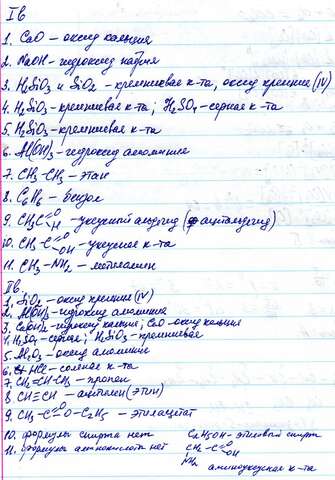 I в
1. CaO – оксид кальция
2. NaOH – гидроксид натрия
3. H₂SiO₃ и SiO₂ – кремниевая к-та, оксид кремния (IV)
4. H₂SiO₃ – кремниевая к-та; H₂SO₄ – серная к-та
5. H₂SiO₃ – кремниевая к-та
6. Al(OH)₃ – гидроксид алюминия
7. CH₃ – CH₃ – этан
8. C₆H₆ – бензол
9. CH₃C=O H – уксусный альдегид (ацетальдегид)
10. CH₃ – C=O OH – уксусная к-та
11. CH₃ – NH₂ – метиламин
II в.
1. SiO₂ – оксид кремния (IV)
2. Al(OH)₃ – гидроксид алюминия
3. Ca(OH)₂ – гидроксид кальция; CaO – оксид кальция
4. H₂SO₄ – серная; H₂SiO₃ – кремниевая
5. Al₂O₃ – оксид алюминия
6. HCl – соляная к-та
7. CH₂=CH–CH₃ – пропен
8. CH≡CH – ацетилен (этин)
9. CH₃ – C=O –O – C₂H₅ – этилацетат
10. формулы спирта нет C₂H₅OH – этиловый спирт
11. формулы аминокислоты нет CH₂ – C=O OH
NH₂ аминоуксусная к-та